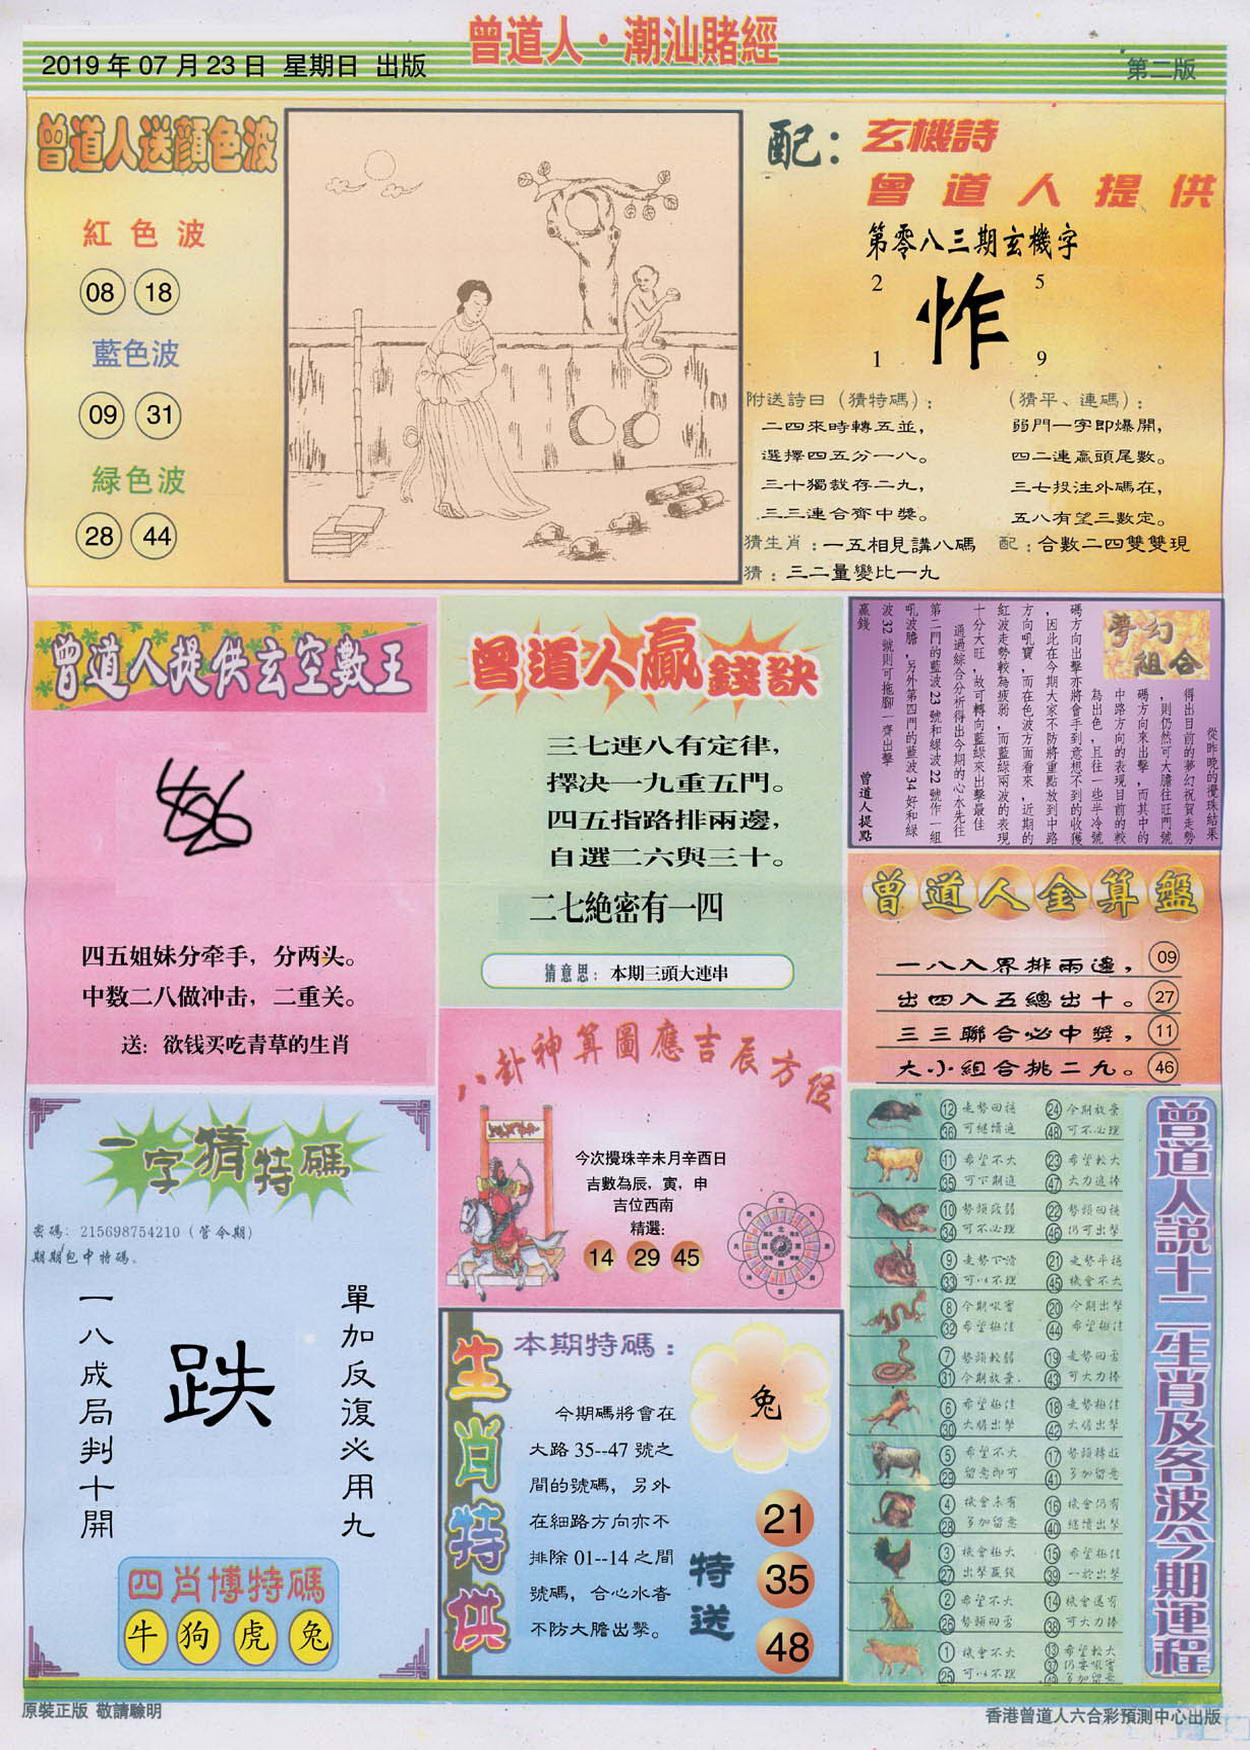 曾道人·潮汕賭經
2019年07月23日 星期日 出版
第二版
曾道人送顔色波
紅色波
08 18
藍色波
09 31
緑色波
28 44
配：玄機詩
曾道人提供
第零八三期玄機字
2 5
怍
1 9
附送詩曰（猜特碼）：
二四來時轉五並，
選擇四五分一八。
三十獨裁存二九，
三三連合齊中獎。
（猜平、連碼）：
弱門一字即爆開，
四二連贏頭尾數。
三七投注外碼在，
五八有望三數定。
猜生肖：一五相見講八碼 配：合數二四雙雙現
猜：三二量變比一九
曾道人提供玄空數王
四五姐妹分牵手，分两头。
中数二八做冲击，二重关。
送：欲钱买吃青草的生肖
曾道人贏錢訣
三七連八有定律，
擇决一九重五門。
四五指路排兩邊，
自選二六與三十。
二七絶密有一四
猜意思：本期三頭大連串
夢幻
組合
從昨晚的攪珠結果
得出目前的夢幻祝賀走勢
，則仍然可大膽往旺門號
碼方向來出擊，而其中的
中路方向的表現目前的較
為出色，且往一些半冷號
碼方向出擊亦將會手到意想不到的收獲
，因此在今期大家不防將重點放到中路
方向吼寶，而在色波方面看來，近期的
紅波走勢較為疲弱，而藍緑兩波的表現
十分大旺，故可轉向藍緑來出擊最佳
通過綜合分析得出今期的心水先往
第二門的藍波23號和緑波22號作一組
吼波膽，另外第四門的藍波34好和緑
波32號則可拖腳一齊出擊
贏錢
曾道人提點
曾道人金算盤
一八入界排兩邊，09
出四入五總出十。27
三三聯合必中獎，11
大小組合挑二九。46
八卦神算圖應吉辰方位
今次攪珠辛未月辛酉日
吉數為辰，寅，申
吉位西南
精選：
14 29 45
一字猜特碼
密碼：215698754210（管令期）
期期包中特碼。
單加反復必用九
跌
一八成局判十開
四肖博特碼
牛 狗 虎 兔
生肖特供
本期特碼：
兔
今期碼將會在
大路35--47號之
間的號碼，另外
在細路方向亦不
排除01--14之間
號碼，合心水者
不防大膽出擊。
特送
21
35
48
曾道人説十二生肖及各波今期運程
12 走勢回穩 24 今期放棄
36 可繼續追 48 可不必理
11 希望不大 23 希望較大
35 可下期追 47 大力追捧
10 勢頭疲弱 22 勢頭回穩
34 可不必理 46 仍可出擊
9 走勢下滑 21 走勢平穩
33 可以不理 45 機會不大
8 今期吼寶 20 今期出擊
32 希望極佳 44 希望極佳
7 勢頭較弱 19 走勢回落
31 今期放棄. 43 可大力捧
6 希望極佳 18 走勢極佳
30 大膽出擊 42 大膽出擊
5 希望不大 17 勢頭轉旺
29 留意即可 41 多加留意
4 機會未有 16 機會仍有
28 多加留意 40 繼續出擊
3 機會極大 15 希望極佳
27 出擊贏錢 39 一於出擊
2 希望不大 14 機會還有
26 勢頭回落 38 可大力捧
1 機會不大 13 希望較大
25 可以不理 37 仍要吼寶
49 多加留意
原裝正版 敬請驗明
香港曾道人六合彩預測中心出版